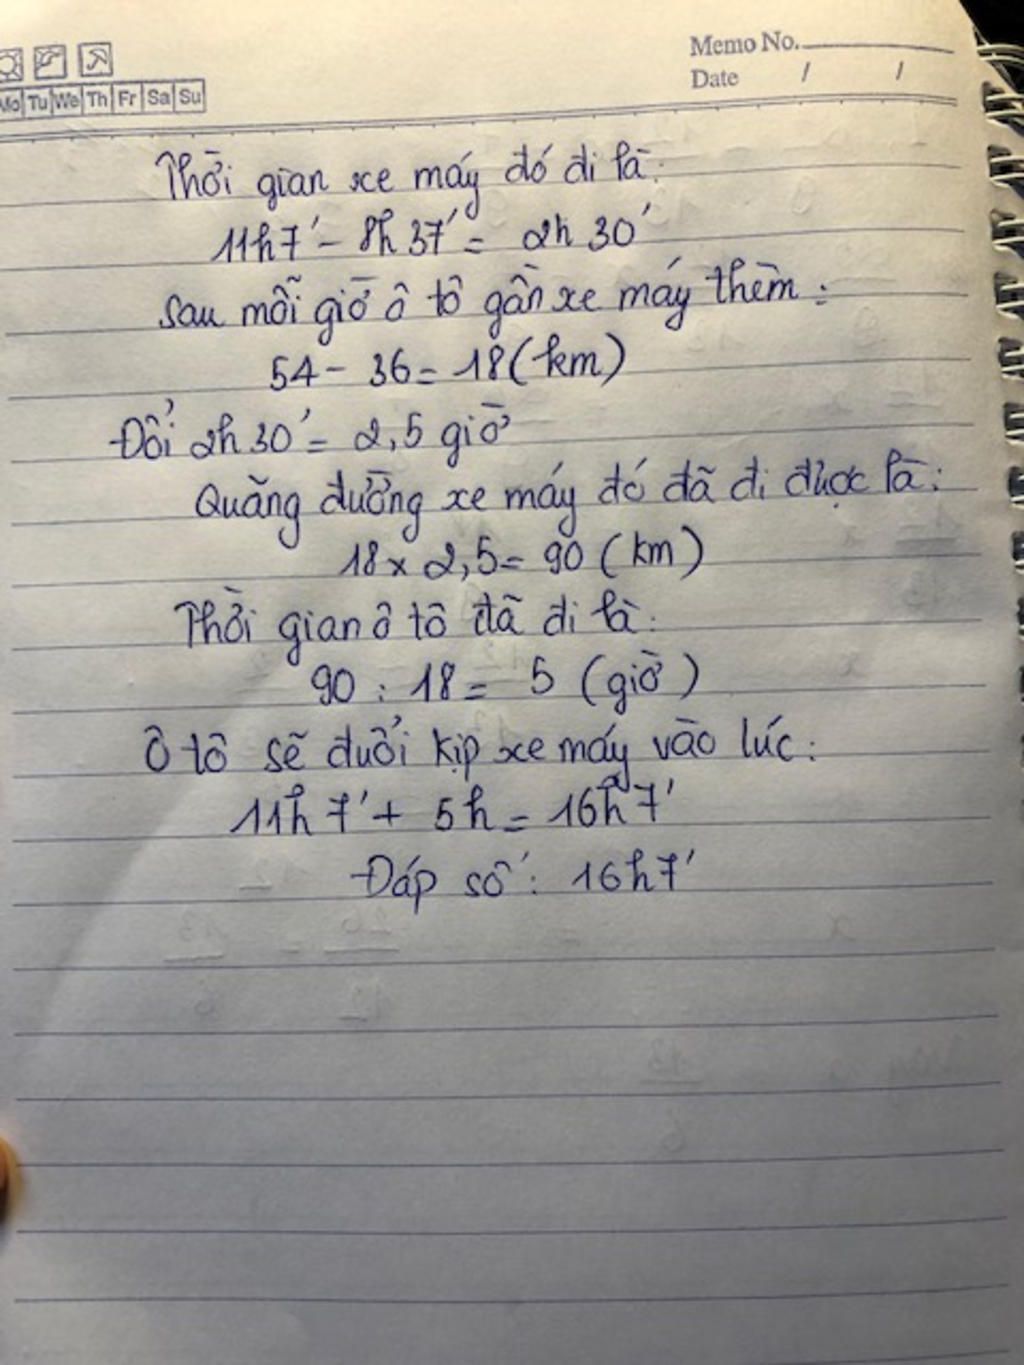 Memo No.
Mo Tu We Th Fr Sa Su
Date / /
Thời gian xe máy đó đi là:
11h7' - 8h37' = 2h30'
Sau mỗi giờ ô tô gần xe máy thêm:
54 - 36 = 18 (km)
Đổi 2h30' = 2,5 giờ
Quãng đường xe máy đó đã đi được là:
18 x 2,5 = 90 (km)
Thời gian ô tô đã đi là:
90 : 18 = 5 (giờ)
Ô tô sẽ đuổi kịp xe máy vào lúc:
11h7' + 5h = 16h7'
Đáp số: 16h7'